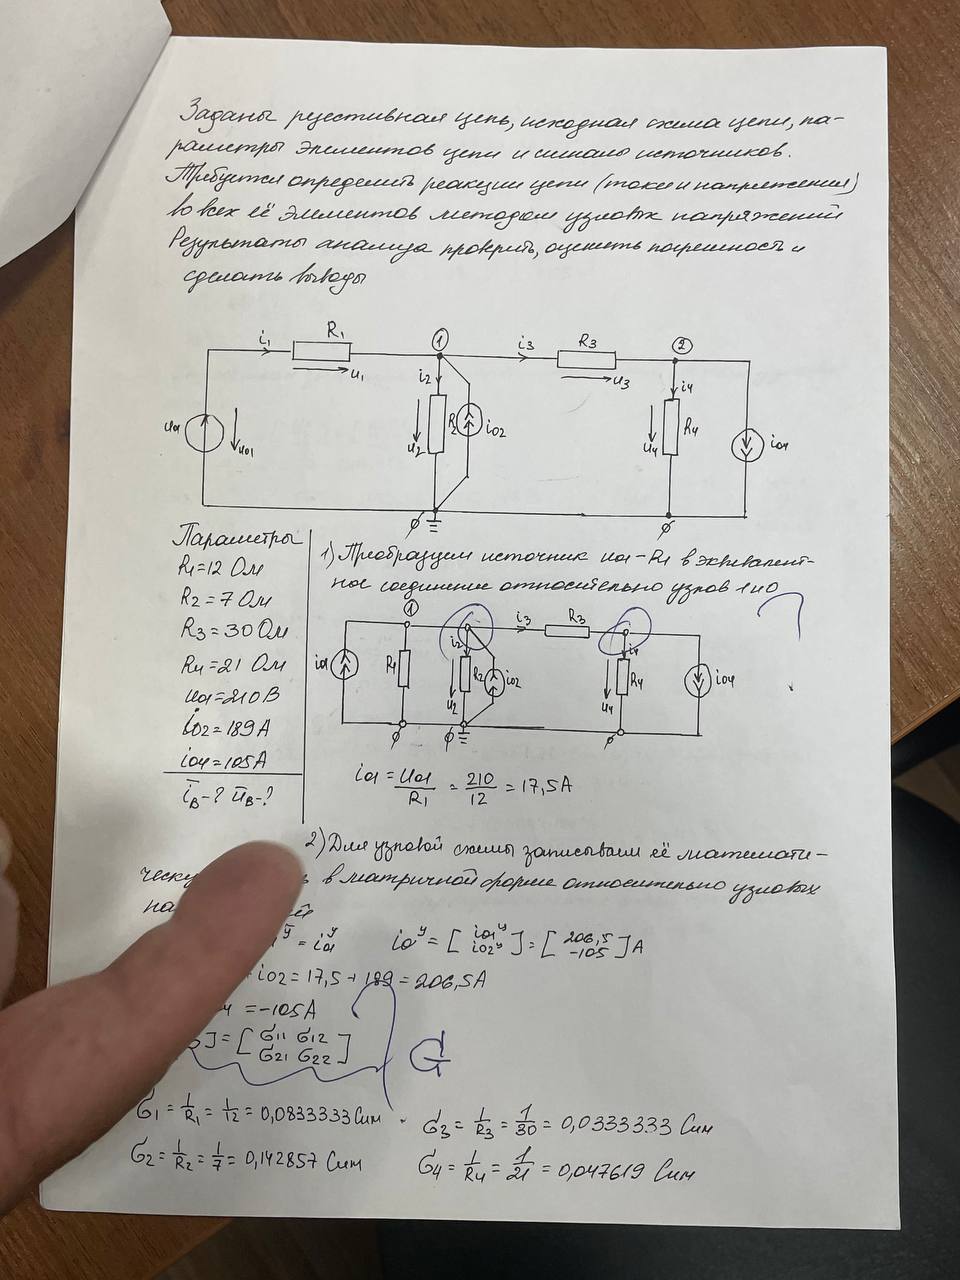 Заданы резистивная цепь, исходная схема цепи, па-
раметры элементов цепи и сигналы источников.
Требуется определить реакции цепи (токи и напряжения)
во всех её элементов методом узловых напряжений
Результаты анализа проверить, оценить погрешность и
сделать выводы
i₁ R₁ ① i₃ R₃ ②
u₁ i₂ u₃ i₄
u₀₁ u₀₁ u₂ R₂ i₀₂ u₄ R₄ i₀₄
∅ ∅
Параметры
R₁=12 Ом
R₂=7 Ом
R₃=30 Ом
R₄=21 Ом
u₀₁=210 В
i₀₂=189 А
i₀₄=105 А
i̅в-? u̅в-?
1) Преобразуем источник u₀₁-R₁ в эквивалент-
ное соединение относительно узлов 1 и 0
① i₃ R₃
i₀₁ R₁ i₂ R₂ i₀₂ i₄ R₄ i₀₄
u₂ u₄
∅ ∅ ∅
i₀₁ = u₀₁/R₁ = 210/12 = 17,5 А
2) Для узловой схемы записываем её математи-
ческу в матричной форме относительно узловых
на
= i₀₁ʸ i₀ʸ = [i₀₁ʸ i₀₂ʸ] = [206,5 -105] А
+ i₀₂ = 17,5 + 189 = 206,5 А
= -105 А
] = [G₁₁ G₁₂ G₂₁ G₂₂]
G
G₁ = 1/R₁ = 1/12 = 0,0833333 Сим
G₃ = 1/R₃ = 1/30 = 0,0333333 Сим
G₂ = 1/R₂ = 1/7 = 0,142857 Сим
G₄ = 1/R₄ = 1/21 = 0,047619 Сим